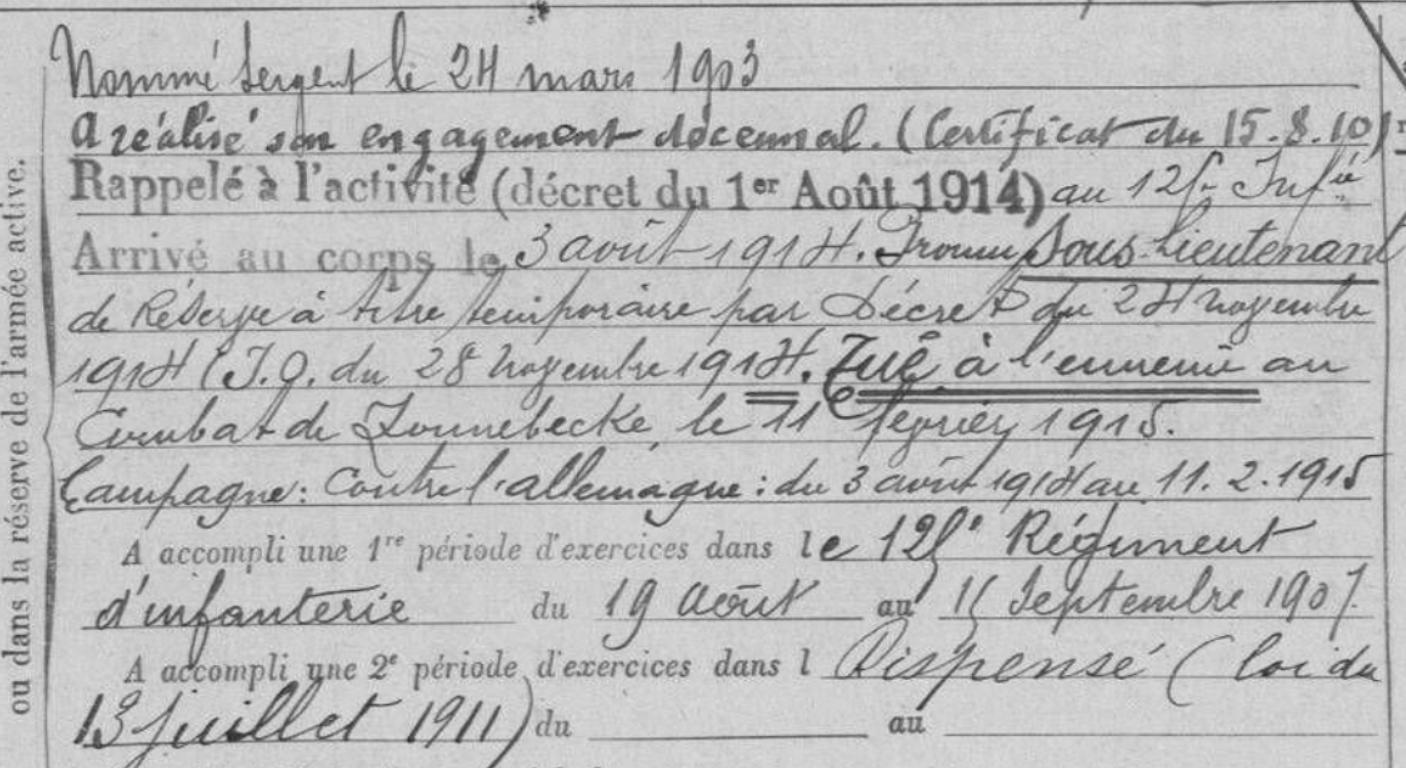 Nommé Sergent le 24 mars 1903
A réalisé son engagement décennal. (Certificat du 15.8.10)
Rappelé à l'activité (décret du 1er Août 1914) au 125e Infie
Arrivé au corps le 3 août 1914. Promu Sous-Lieutenant
de Réserve à titre temporaire par Décret du 24 novembre
1914 (J.O. du 28 novembre 1914. Tué à l'ennemi au
Combat de Zonnebecke, le 11 février 1915.
Campagne: Contre l'allemagne: du 3 août 1914 au 11.2.1915
A accompli une 1re période d'exercices dans le 125e Régiment
d'infanterie du 19 Août au 15 Septembre 1907.
A accompli une 2e période d'exercices dans l Dispensé (loi du
13 juillet 1911) du au
ou dans la réserve de l'armée active.